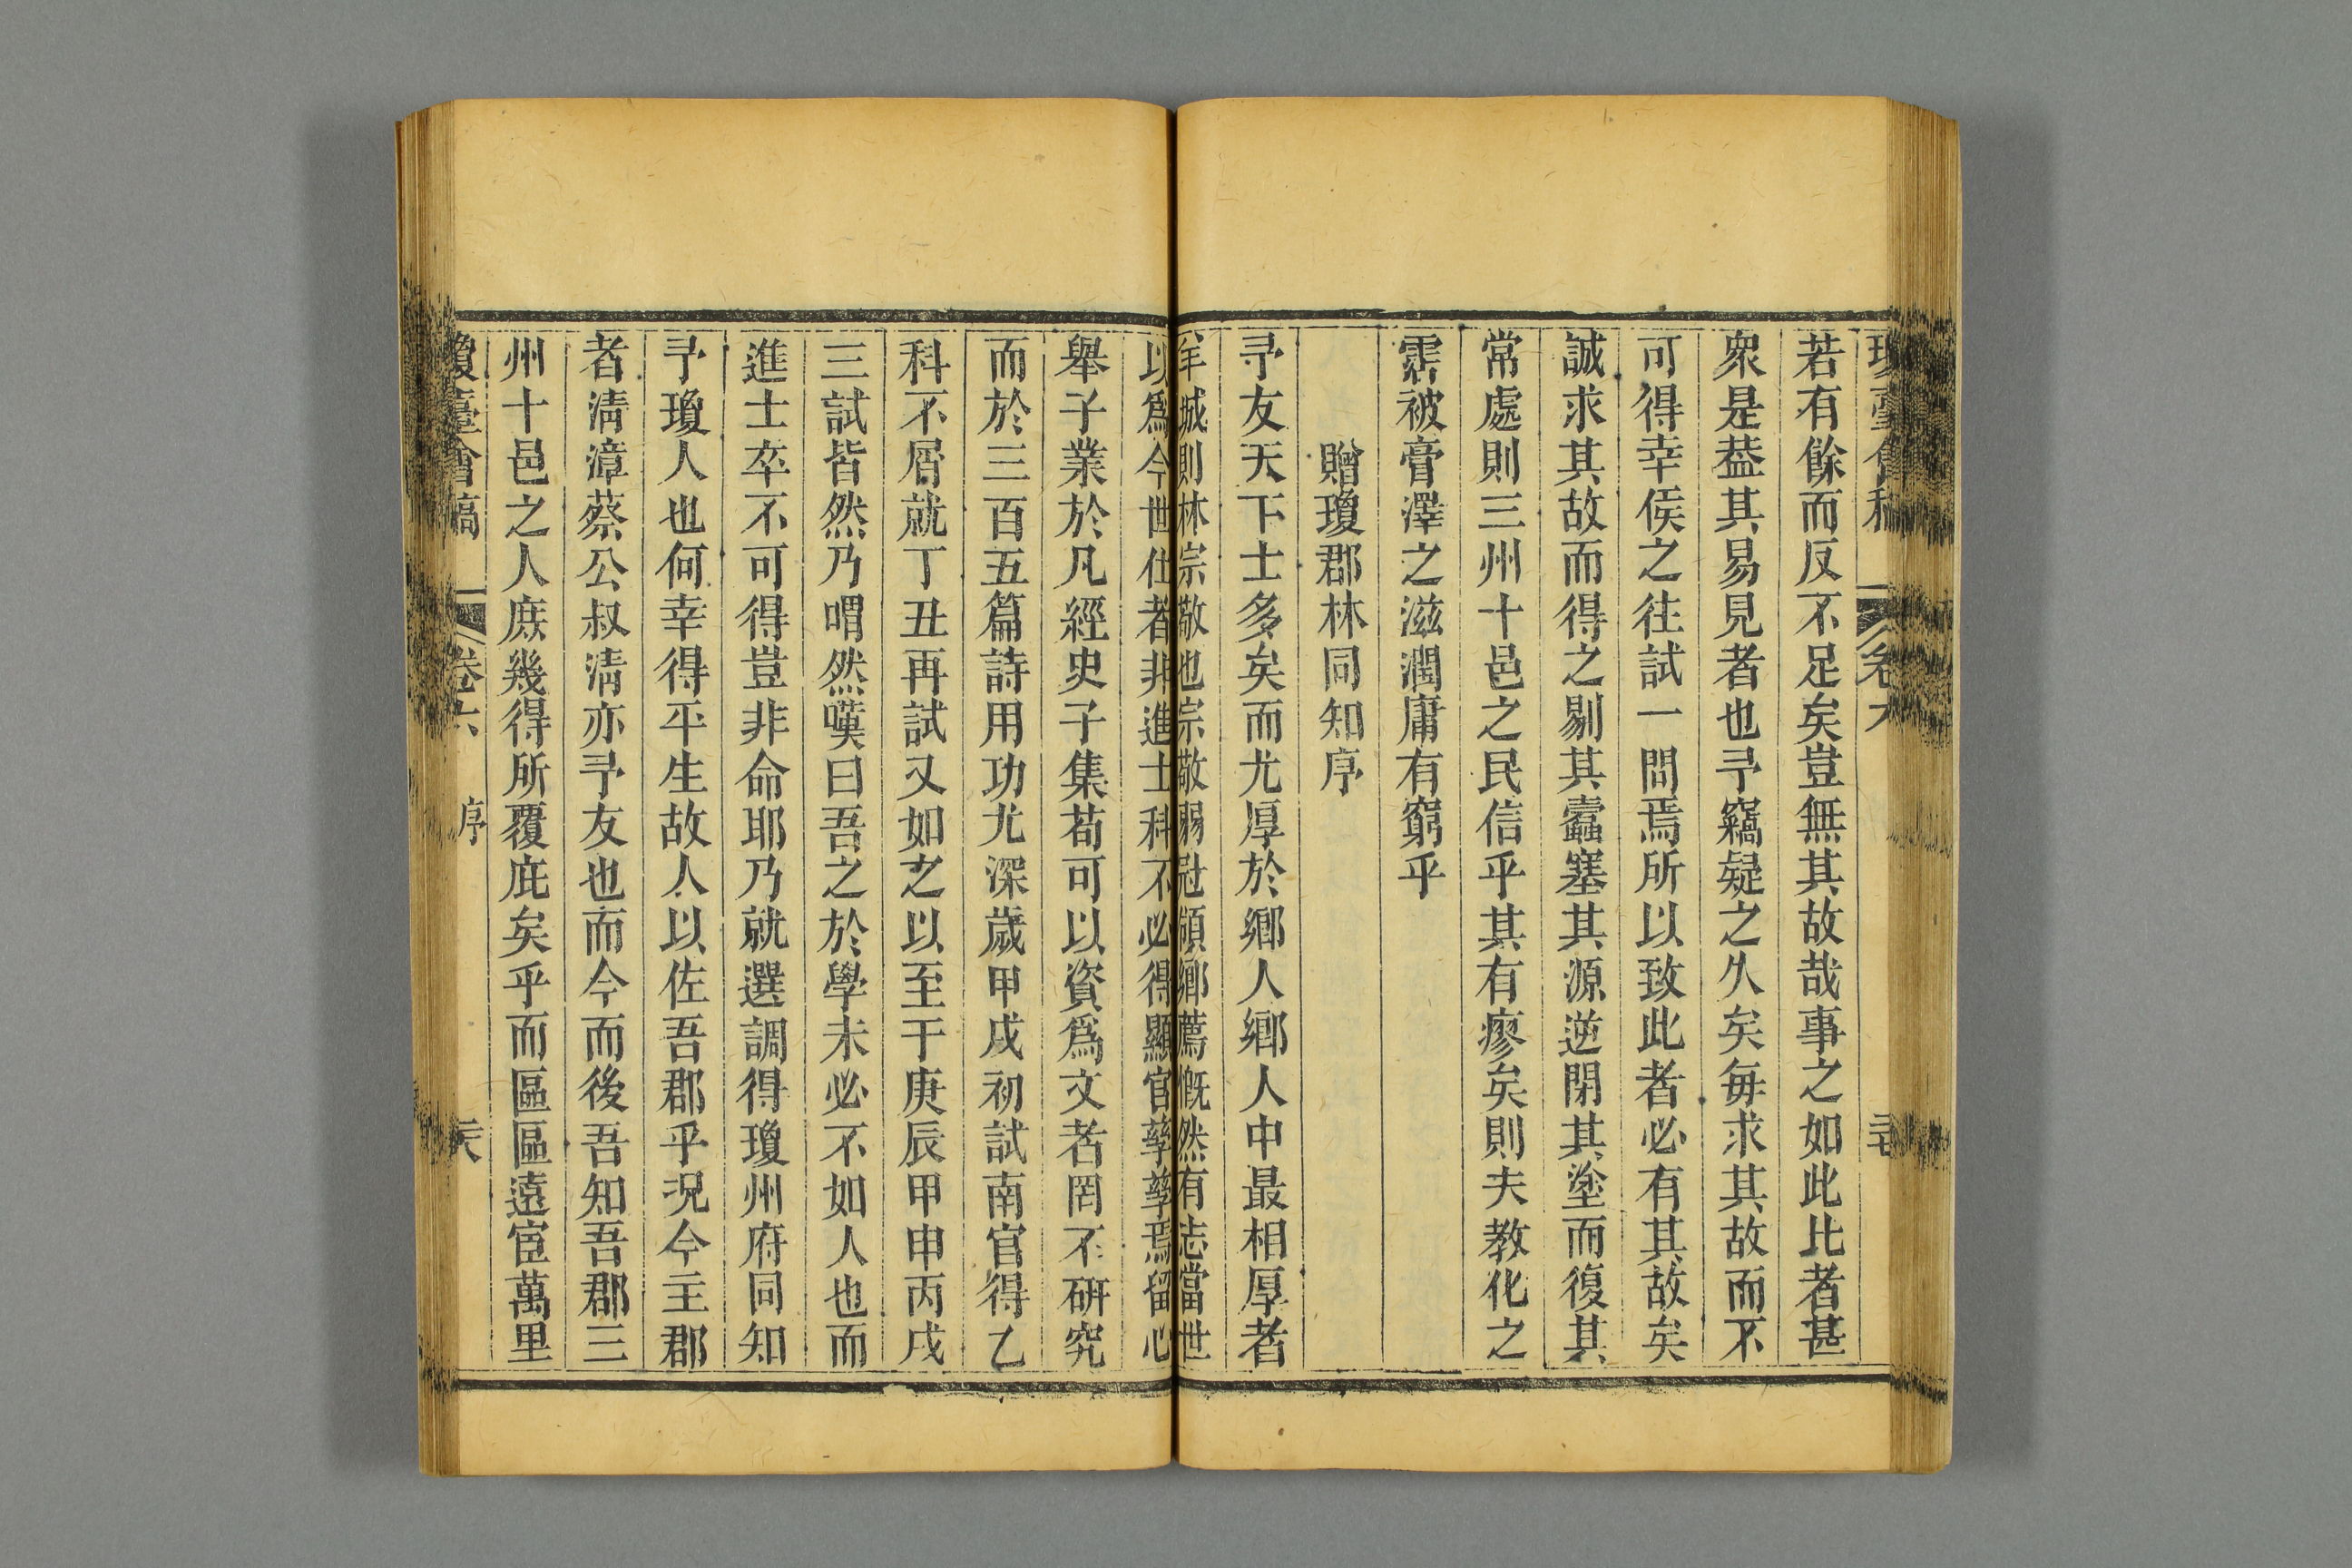 瓊臺會稿 卷六
若有餘而反不足矣豈無其故哉事之如此比者甚
衆是葢其易見者也予竊疑之久矣每求其故而不
可得幸侯之往試一問焉所以致此者必有其故矣
誠求其故而得之剔其蠧塞其源逆閉其塗而復其
常處則三州十邑之民信乎其有瘳矣則夫教化之
霑被膏澤之滋潤庸有窮乎
贈瓊郡林同知序
予友天下士多矣而尤厚於鄉人鄉人中最相厚者
羊城則林宗敬也宗敬弱冠領鄉薦慨然有志當世
以爲今世仕者非進士科不必得顯官孳孳焉留心
舉子業於凡經史子集苟可以資爲文者罔不硏究
而於三百五篇詩用功尤深歲甲戌初試南宮得乙
科不屑就丁丑再試又如之以至于庚辰甲申丙戌
三試皆然乃喟然嘆曰吾之於學未必不如人也而
進士卒不可得豈非命耶乃就選調得瓊州府同知
予瓊人也何幸得平生故人以佐吾郡乎況今主郡
者淸漳蔡公叔淸亦予友也而今而後吾知吾郡三
州十邑之人庶幾得所覆庇矣乎而區區遠宦萬里
瓊臺會稿 卷六 序